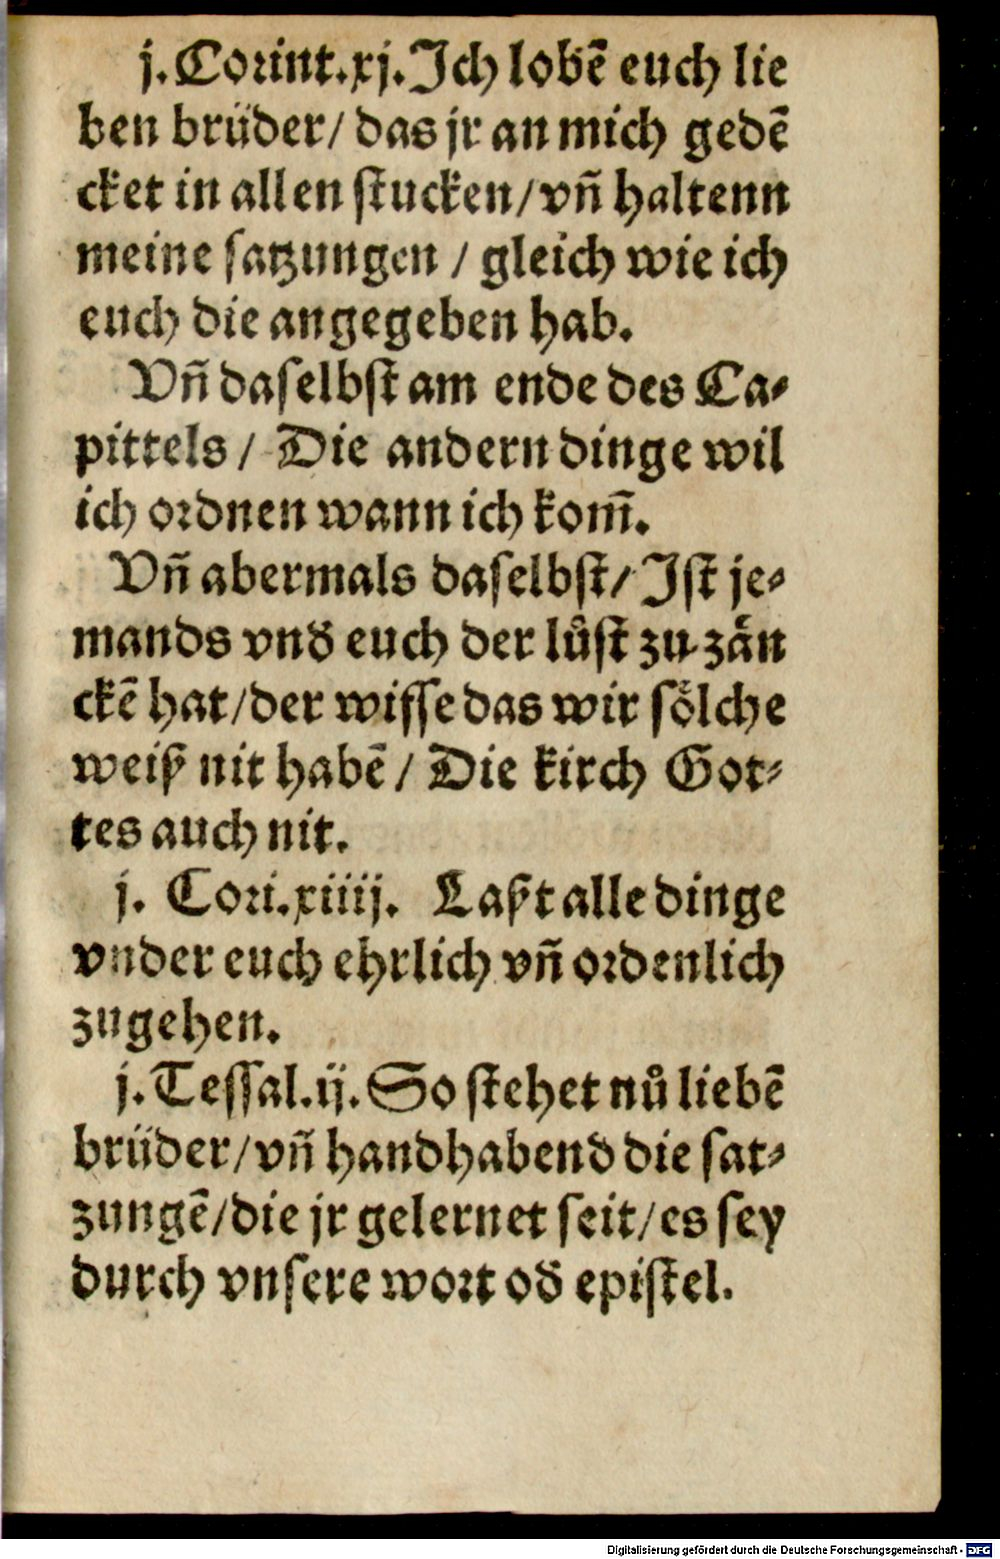 j. Corint. xj. Ich lobē euch lie
ben brüder/ das jr an mich gedē
cket in allen stucken/ vñ haltenn
meine satzungen / gleich wie ich
euch die angegeben hab.
Vñ daselbst am ende des Ca⸗
pittels / Die andern dinge wil
ich ordnen wann ich kom̄.
Vñ abermals daselbst/ Ist je⸗
mands vnd̕ euch der lůst zu zån
ckē hat/ der wisse das wir sőlche
weiß nit habē / Die kirch Got⸗
tes auch nit.
j. Cori. xiiij. Laßt alle dinge
vnder euch ehrlich vñ ordenlich
zugehen.
j. Tessal. ij. So stehet nů liebē
brüder/ vñ handhabend die sat⸗
zungē/ die jr gelernet seit/ es sey
durch vnsere wort od̕ epistel.
Digitalisierung gefördert durch die Deutsche Forschungsgemeinschaft - DFG